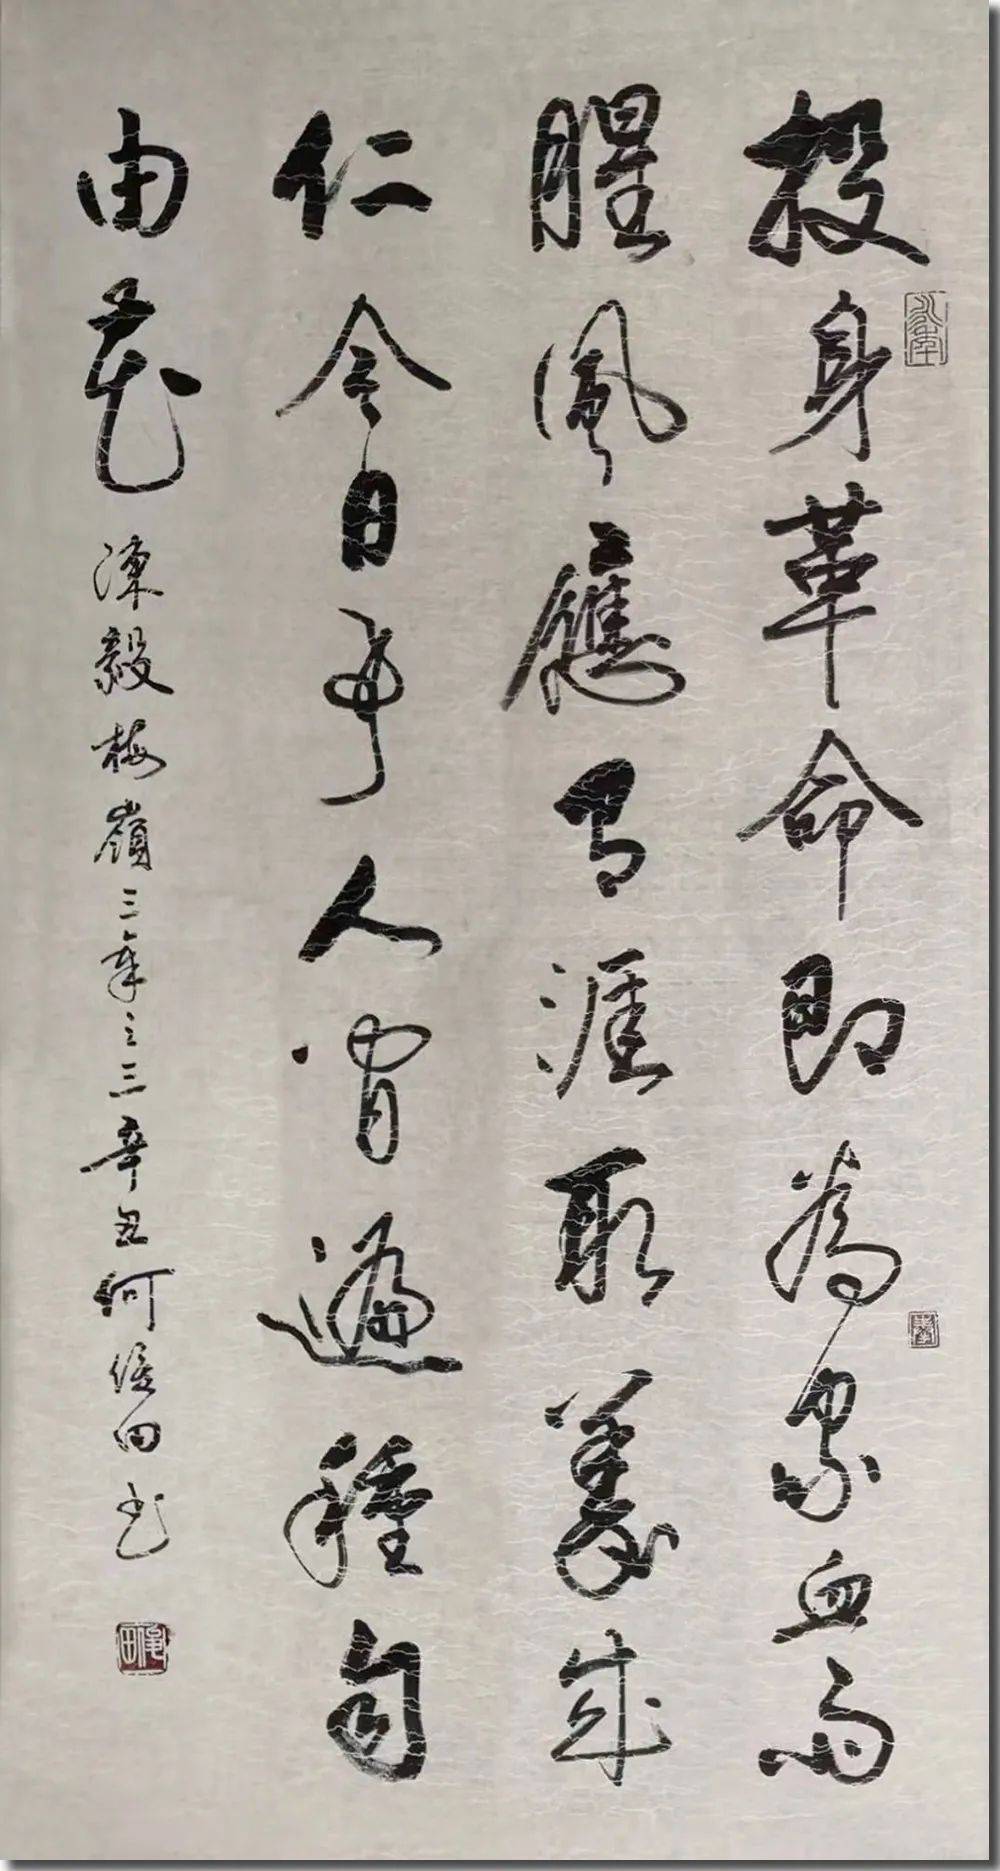 投身革命即為家血雨
腥風應有涯取義成
仁今日事人間遍種自
由花
陳毅梅嶺三章之三辛丑何俊田书
俊田